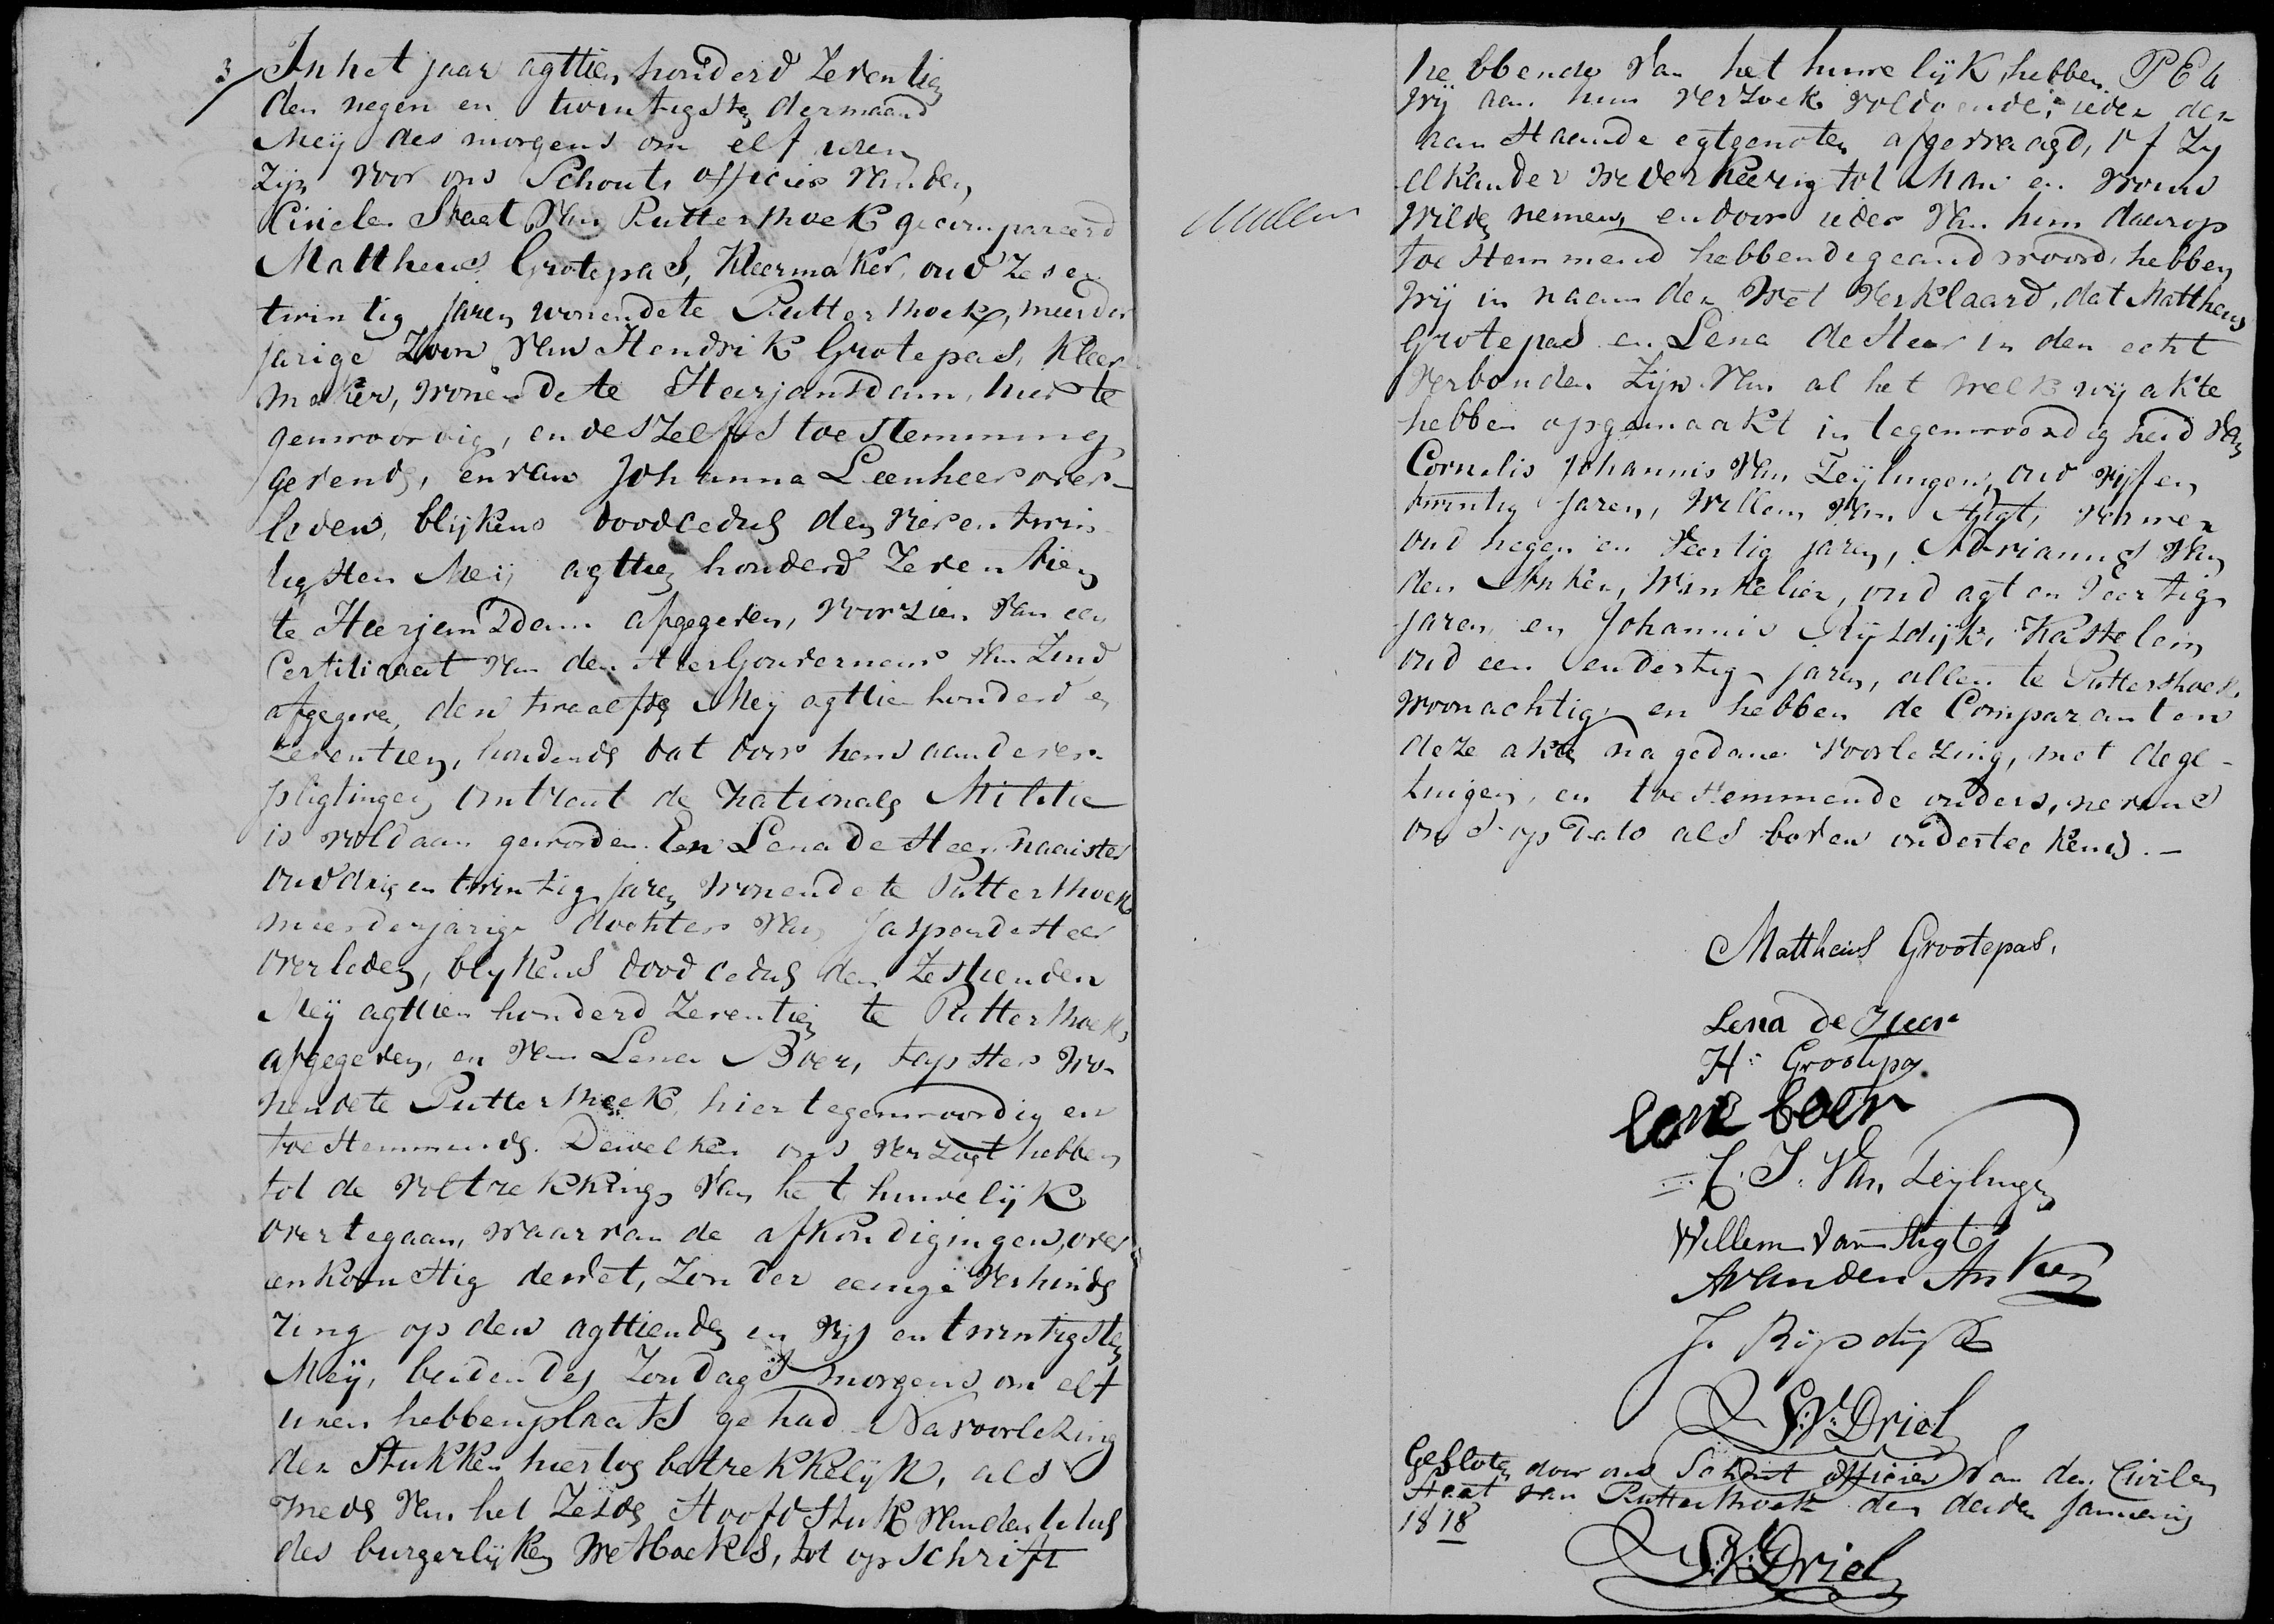 3
In het jaar agttien honderd Zeventien
den negen en twintigsten der maand
Meij des morgens om elf uren
Zijn voor ons Schout officier van den
Civielen Staat van Putterskoek gecompareerd
Mattheus Grotepas, Kleermaker, oud Zes en
twintig jaren wonende te Puttershoek, meerder
jarige Zoon van Hendrik Grotepas, Kleer
maker, wonende te Heerjansdam, hier te
genwoordig, en deszelfs toestemming
gevende, en van Johanna Leenheer over-
leden, blijkens doodcedul den vier en twin
tigsten Meij agttien honderd Zeventien
te Heerjansdam afgegeven, voorzien van een
Certificaat van den Heer Gouverneur van Zuid
afgegeven den twaalfde Meij agttien honderd en
zeventien, houdende dat door hem aan de ver-
pligtingen omtrent de Nationale Militie
is voldaan geworden. En Lena de Heer, Naaister
oud drie en twintig jaren wonende te Puttershoek
meerderjarige dochter van Jasper de Heer
overleden, blykens doodcedul den Zestienden
Meij agttien honderd Zeventien te Puttershoek
afgegeven, en van Lena Boer, tapster wo-
nende te Puttershoek, hier tegenwoordig en
toestemmende. Dewelken ons verzogt hebben
tot de voltrekking van het huwelijk
over te gaan, waarvan de afkondigingen, over
eenkomstig de wet, Zonder eenige verhinde
ring op den agttienden en vijf en twintigsten
Meij, beiden des Zondags morgens om elf
uren hebben plaats gehad. Na voorlezing
der Stukken hiertoe betrekkelijk, als
mede van het Zesde Hoofdstuk van den titul
des burgerlijken Wetboeks, tot opschrift
hebbende van het huwelijk, hebben
wij aan hun verzoek voldoende, ieder der
aanstaande egtgenoten afgevraagd, of Zij
elkander wederkeerig tot Man en Vrouw
wilden nemen, en door ieder van hun daarop
toestemmend hebbende geandwoord, hebben
wij in naam der Wet verklaard, dat Mattheus
Grotepas en Lena de Heer in den echt
verbonden Zijn. Van al het welk wij akte
hebben opgemaakt in tegenwoordigheid van
Cornelis Johannis van Teylingen, oud vijf en
twintig jaren, Willem van Agt,
oud negen en veertig jaren, Adrianus van
den Anken, Winkelier, oud agt en veertig
jaren en Johannis Rijsdijk, Kastelein
oud een en dertig jaren, allen te Puttershoek
woonachtig, en hebben de Comparanten
deze akte na gedane voorlezing, met de ge-
tuigen, en toestemmende ouders, nevens
ons op dato als boven onderteekend. —
Mattheus Grootepas.
Lena de Heer
H: Grootepas
lena boer
C. J. Van Teylingen
Willem van Agt
A vanden Anken
J. Rijsdijk
S: V: Driel
Gesloten door ons Schout officier van den Civilen
Staat van Puttershoek den derden January
1818
S: V: Driel